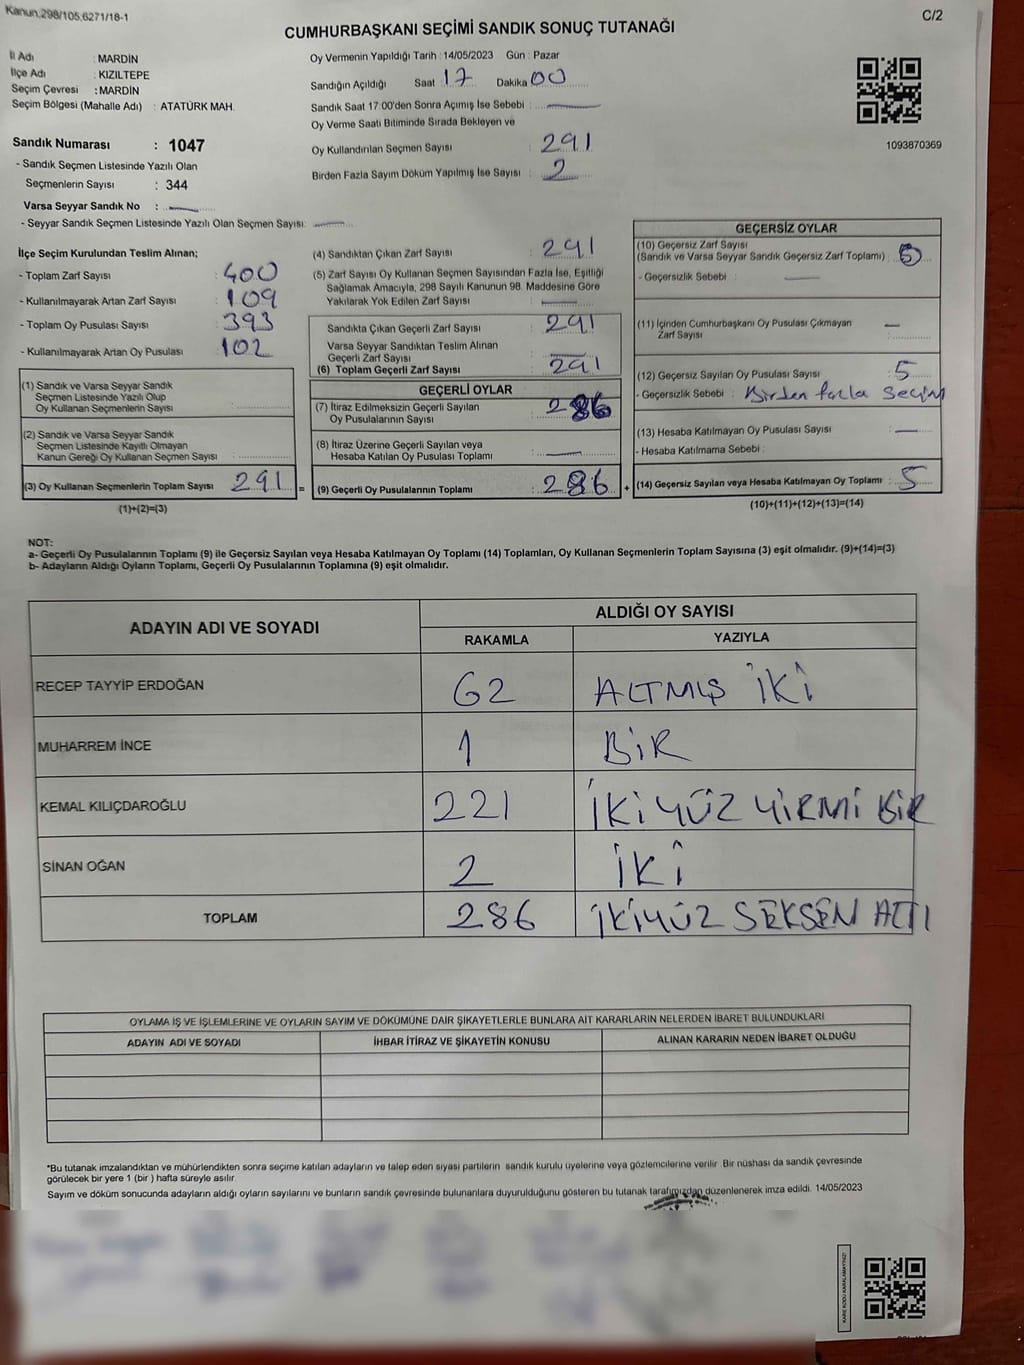 Kanun,298/105,6271/18-1
C/2
CUMHURBAŞKANI SEÇİMİ SANDIK SONUÇ TUTANAĞI
İl Adı : MARDİN
İlçe Adı : KIZILTEPE
Seçim Çevresi : MARDİN
Seçim Bölgesi (Mahalle Adı) : ATATÜRK MAH.
Oy Vermenin Yapıldığı Tarih : 14/05/2023 Gün : Pazar
Sandığın Açıldığı Saat 17 Dakika 00
Sandık Saat 17:00'den Sonra Açımış İse Sebebi :
Oy Verme Saati Bitiminde Sırada Bekleyen ve
Oy Kullandırılan Seçmen Sayısı : 291
Birden Fazla Sayım Döküm Yapılmış İse Sayısı : 2
1093870369
Sandık Numarası : 1047
- Sandık Seçmen Listesinde Yazılı Olan
Seçmenlerin Sayısı : 344
Varsa Seyyar Sandık No :
- Seyyar Sandık Seçmen Listesinde Yazılı Olan Seçmen Sayısı:
İlçe Seçim Kurulundan Teslim Alınan;
- Toplam Zarf Sayısı : 400
- Kullanılmayarak Artan Zarf Sayısı : 109
- Toplam Oy Pusulası Sayısı : 393
- Kullanılmayarak Artan Oy Pusulası : 102
(1) Sandık ve Varsa Seyyar Sandık
Seçmen Listesinde Yazılı Olup
Oy Kullanan Seçmenlerin Sayısı :
(2) Sandık ve Varsa Seyyar Sandık
Seçmen Listesinde Kayıtlı Olmayan
Kanun Gereği Oy Kullanan Seçmen Sayısı :
(3) Oy Kullanan Seçmenlerin Toplam Sayısı : 291
(1)+(2)=(3)
(4) Sandıktan Çıkan Zarf Sayısı : 291
(5) Zarf Sayısı Oy Kullanan Seçmen Sayısından Fazla İse, Eşitliği
Sağlamak Amacıyla, 298 Sayılı Kanunun 98. Maddesine Göre
Yakılarak Yok Edilen Zarf Sayısı :
Sandıkta Çıkan Geçerli Zarf Sayısı : 291
Varsa Seyyar Sandıktan Teslim Alınan
Geçerli Zarf Sayısı :
(6) Toplam Geçerli Zarf Sayısı : 291
GEÇERLİ OYLAR
(7) İtiraz Edilmeksizin Geçerli Sayılan
Oy Pusulalarının Sayısı : 286
(8) İtiraz Üzerine Geçerli Sayılan veya
Hesaba Katılan Oy Pusulası Toplamı :
= (9) Geçerli Oy Pusulalarının Toplamı : 286
GEÇERSİZ OYLAR
(10) Geçersiz Zarf Sayısı
(Sandık ve Varsa Seyyar Sandık Geçersiz Zarf Toplamı) : 5
- Geçersizlik Sebebi :
(11) İçinden Cumhurbaşkanı Oy Pusulası Çıkmayan
Zarf Sayısı : –
(12) Geçersiz Sayılan Oy Pusulası Sayısı : 5
- Geçersizlik Sebebi : Birden fazla seçim
(13) Hesaba Katılmayan Oy Pusulası Sayısı : —
- Hesaba Katılmama Sebebi :
+ (14) Geçersiz Sayılan veya Hesaba Katılmayan Oy Toplamı : 5
(10)+(11)+(12)+(13)=(14)
NOT:
a- Geçerli Oy Pusulalarının Toplamı (9) ile Geçersiz Sayılan veya Hesaba Katılmayan Oy Toplamı (14) Toplamları, Oy Kullanan Seçmenlerin Toplam Sayısına (3) eşit olmalıdır. (9)+(14)=(3)
b- Adayların Aldığı Oyların Toplamı, Geçerli Oy Pusulalarının Toplamına (9) eşit olmalıdır.
ADAYIN ADI VE SOYADI ALDIĞI OY SAYISI
RAKAMLA YAZIYLA
RECEP TAYYİP ERDOĞAN 62 ALTMIŞ İKİ
MUHARREM İNCE 1 BİR
KEMAL KILIÇDAROĞLU 221 İKİ YÜZ YİRMİ BİR
SİNAN OĞAN 2 İKİ
TOPLAM 286 İKİYÜZ SEKSEN ALTI
OYLAMA İŞ VE İŞLEMLERİNE VE OYLARIN SAYIM VE DÖKÜMÜNE DAİR ŞİKAYETLERLE BUNLARA AİT KARARLARIN NELERDEN İBARET BULUNDUKLARI
ADAYIN ADI VE SOYADI İHBAR İTİRAZ VE ŞİKAYETİN KONUSU ALINAN KARARIN NEDEN İBARET OLDUĞU
*Bu tutanak imzalandıktan ve mühürlendikten sonra seçime katılan adayların ve talep eden siyasi partilerin sandık kurulu üyelerine veya gözlemcilerine verilir. Bir nüshası da sandık çevresinde
görülecek bir yere 1 (bir) hafta süreyle asılır.
Sayım ve döküm sonucunda adayların aldığı oyların sayılarını ve bunların sandık çevresinde bulunanlara duyurulduğunu gösteren bu tutanak tarafımızdan düzenlenerek imza edildi. 14/05/2023
KARE KODU KARALAMAYINIZ!